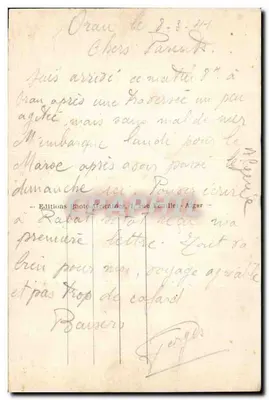 Oran le 8-3-14
Chers Parents.
Suis arrivé ce matin 8h à
Oran après une traversée un peu
agitée, mais sans mal de mer
M'embarque lundi pour le
Maroc après avoir passé
dimanche ici. Pouvez écrire
à Rabat
première lettre. Tout va
bien pour moi, voyage agréable
et pas trop de cafard.
Baisers